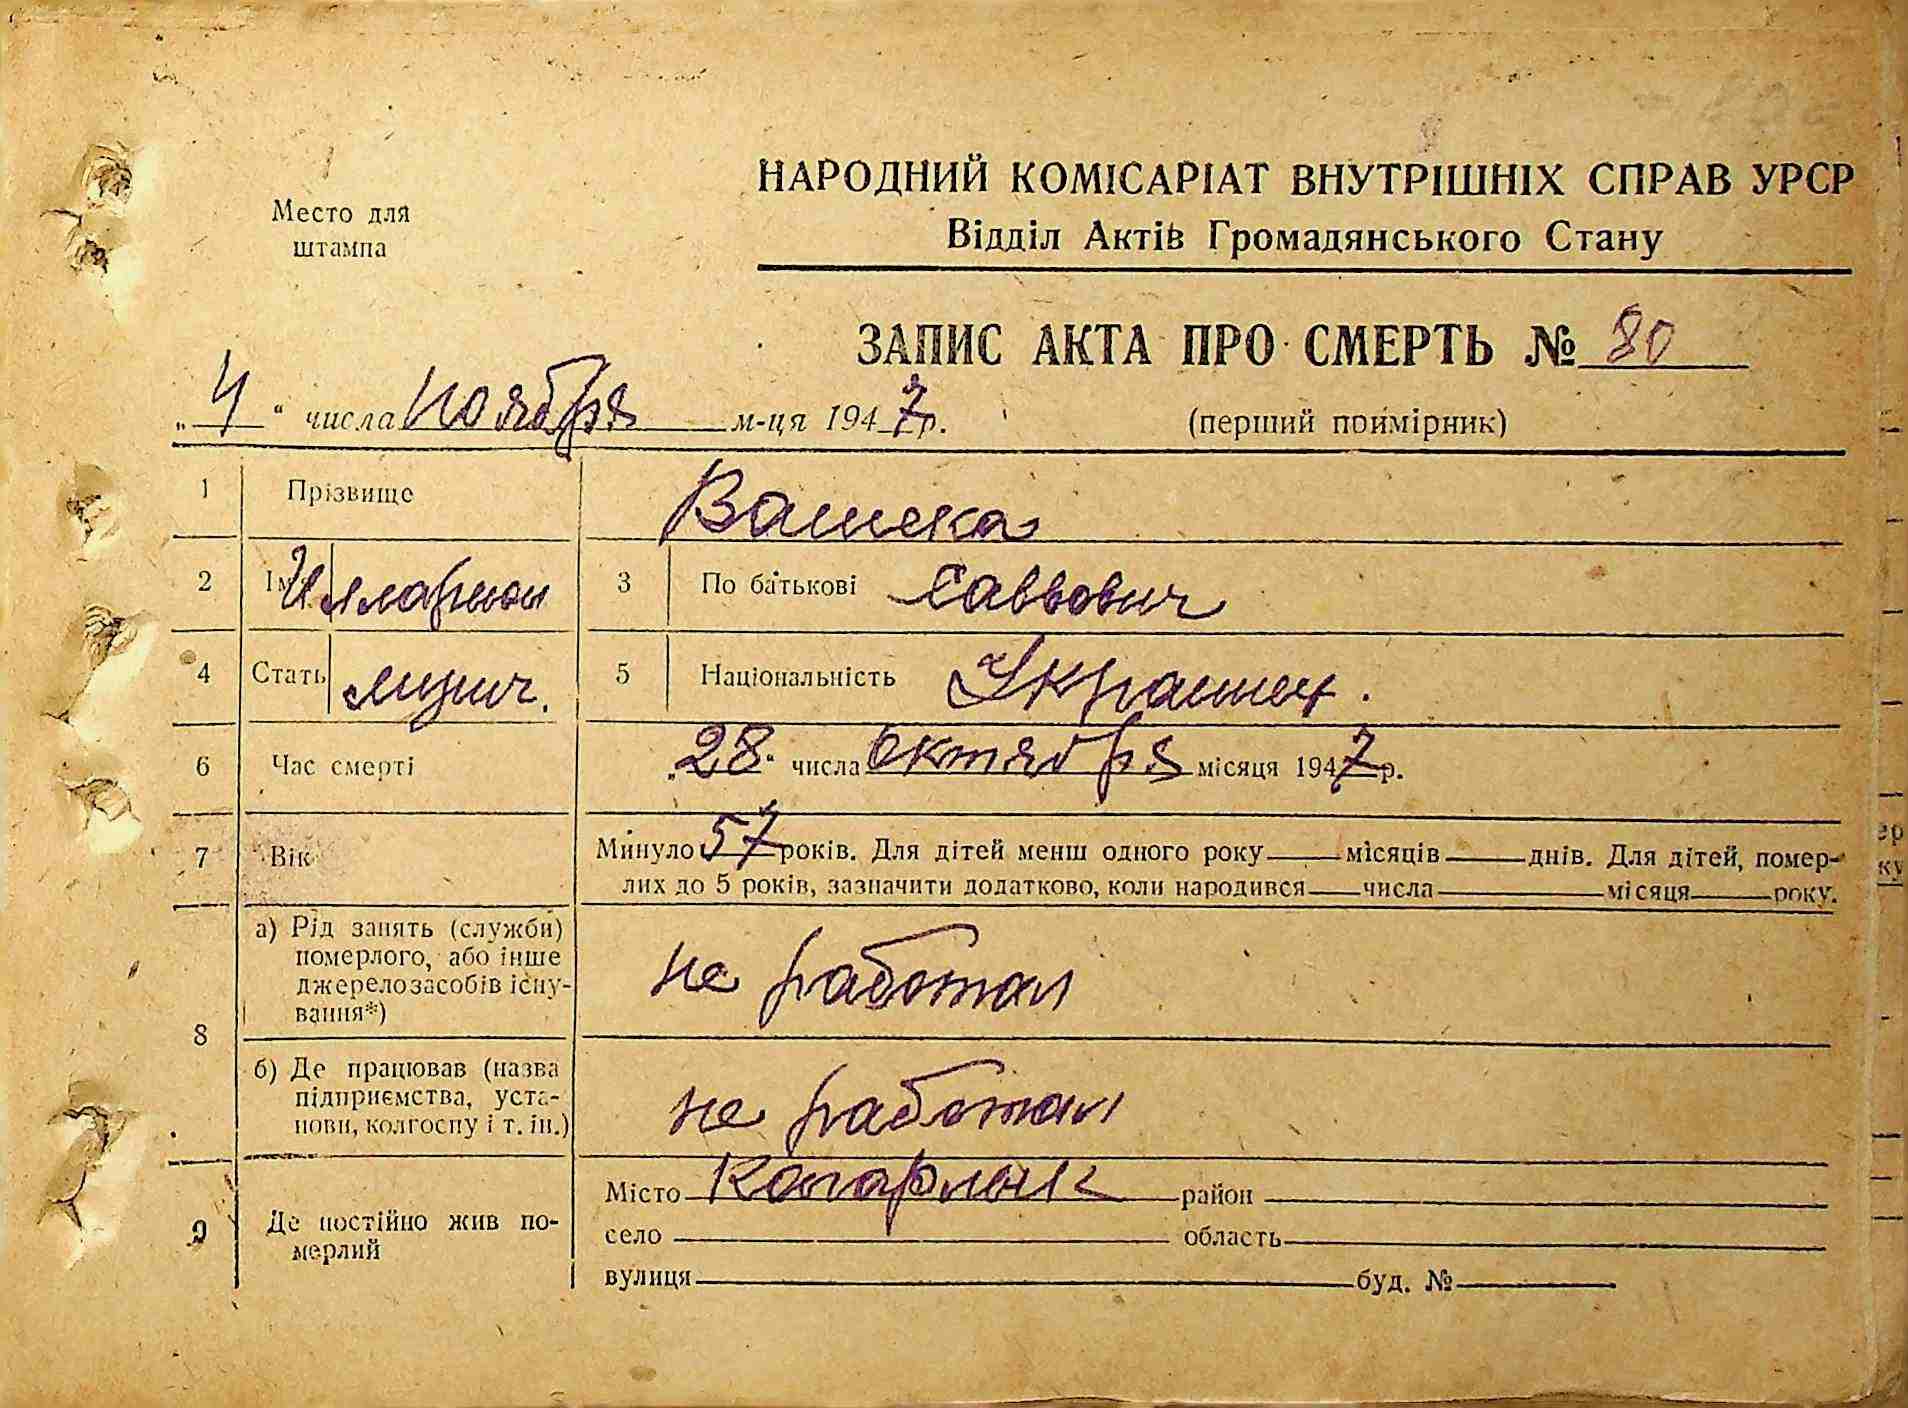 Место для
штампа
НАРОДНИЙ КОМІСАРІАТ ВНУТРІШНІХ СПРАВ УРСР
Відділ Актів Громадянського Стану
ЗАПИС АКТА ПРО СМЕРТЬ № 80
„4“ числа ноября м-ця 1947р.
(перший поимірник)
1 Прізвище Вашека
2 Ім Илларион 3 По батькові Саввович
4 Стать мужч. 5 Національність Украинец.
6 Час смерті „28“ числа октября місяця 1947р.
7 Вік Минуло 57 років. Для дітей менш одного року місяців днів. Для дітей, помер-
лих до 5 років, зазначити додатково, коли народився числа місяця року.
8 а) Рід занять (служби)
померлого, або інше
джерело засобів існу-
вання*)
не работал
б) Де працював (назва
підприємства, уста-
нови, колгоспу і т. ін.)
не работал
9 Де постійно жив по-
мерлий
Місто Кагарлык район
село область
вулиця буд. №